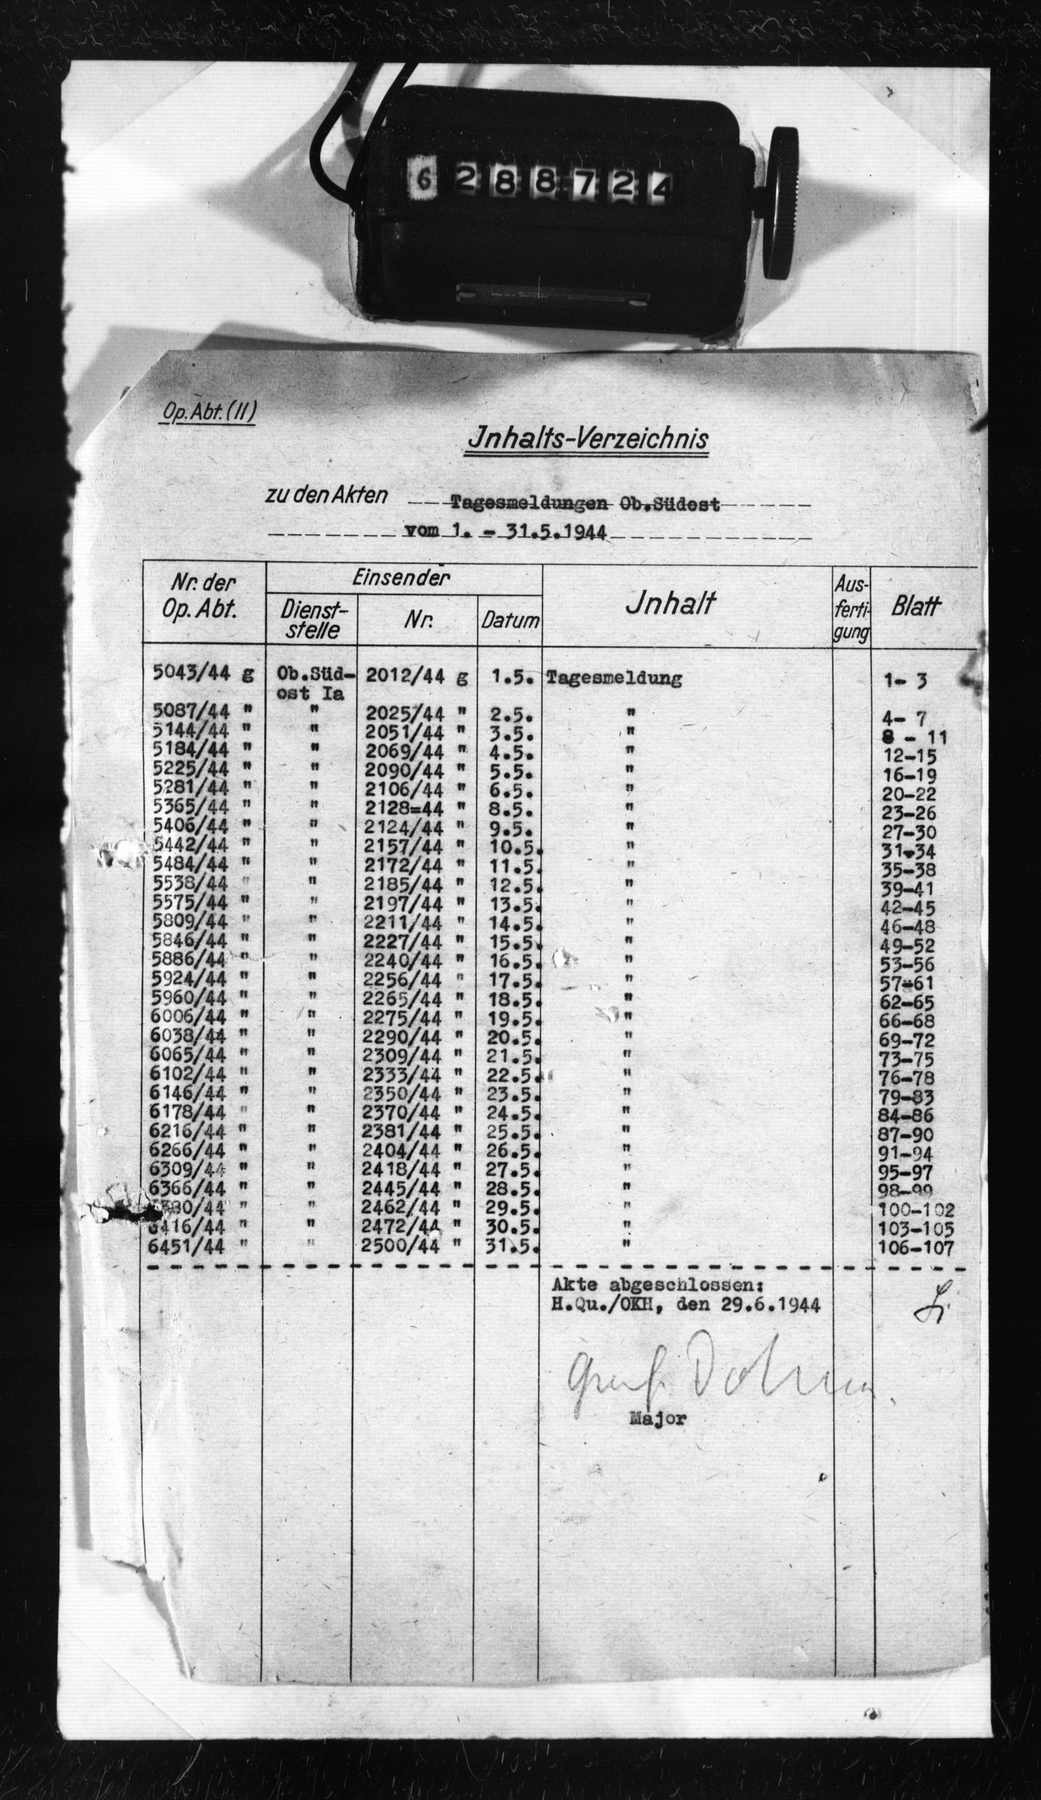 6288724
Op. Abt. (II)
Inhalts-Verzeichnis
zu den Akten Tagesmeldungen Ob.Südost
vom 1. - 31.5.1944
Nr. der Op. Abt. Einsender Inhalt Ausfertigung Blatt
Dienststelle Nr. Datum
5043/44 g Ob.Süd- 2012/44 g 1.5. Tagesmeldung 1- 3
ost Ia
5087/44 " " 2025/44 " 2.5. " 4- 7
5144/44 " " 2051/44 " 3.5. " 8 - 11
5184/44 " " 2069/44 " 4.5. " 12-15
5225/44 " " 2090/44 " 5.5. " 16-19
5281/44 " " 2106/44 " 6.5. " 20-22
5365/44 " " 2128=44 " 8.5. " 23-26
5406/44 " " 2124/44 " 9.5. " 27-30
5442/44 " " 2157/44 " 10.5. " 31-34
5484/44 " " 2172/44 " 11.5. " 35-38
5538/44 " " 2185/44 " 12.5. " 39-41
5575/44 " " 2197/44 " 13.5. " 42-45
5809/44 " " 2211/44 " 14.5. " 46-48
5846/44 " " 2227/44 " 15.5. " 49-52
5886/44 " " 2240/44 " 16.5. " 53-56
5924/44 " " 2256/44 " 17.5. " 57-61
5960/44 " " 2265/44 " 18.5. " 62-65
6006/44 " " 2275/44 " 19.5. " 66-68
6038/44 " " 2290/44 " 20.5. " 69-72
6065/44 " " 2309/44 " 21.5. " 73-75
6102/44 " " 2333/44 " 22.5. " 76-78
6146/44 " " 2350/44 " 23.5. " 79-83
6178/44 " " 2370/44 " 24.5. " 84-86
6216/44 " " 2381/44 " 25.5. " 87-90
6266/44 " " 2404/44 " 26.5. " 91-94
6309/44 " " 2418/44 " 27.5. " 95-97
6366/44 " " 2445/44 " 28.5. " 98-99
" " 2462/44 " 29.5. " 100-102
6416/44 " " 2472/44 " 30.5. " 103-105
6451/44 " " 2500/44 " 31.5. " 106-107
Akte abgeschlossen:
H.Qu./OKH, den 29.6.1944
Major